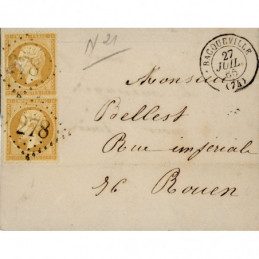 N 21
BACQUEVILLE
27
JUIL.
65
(74)
278
278
Monsieur
Bellest
Rue impériale
96 Rouen